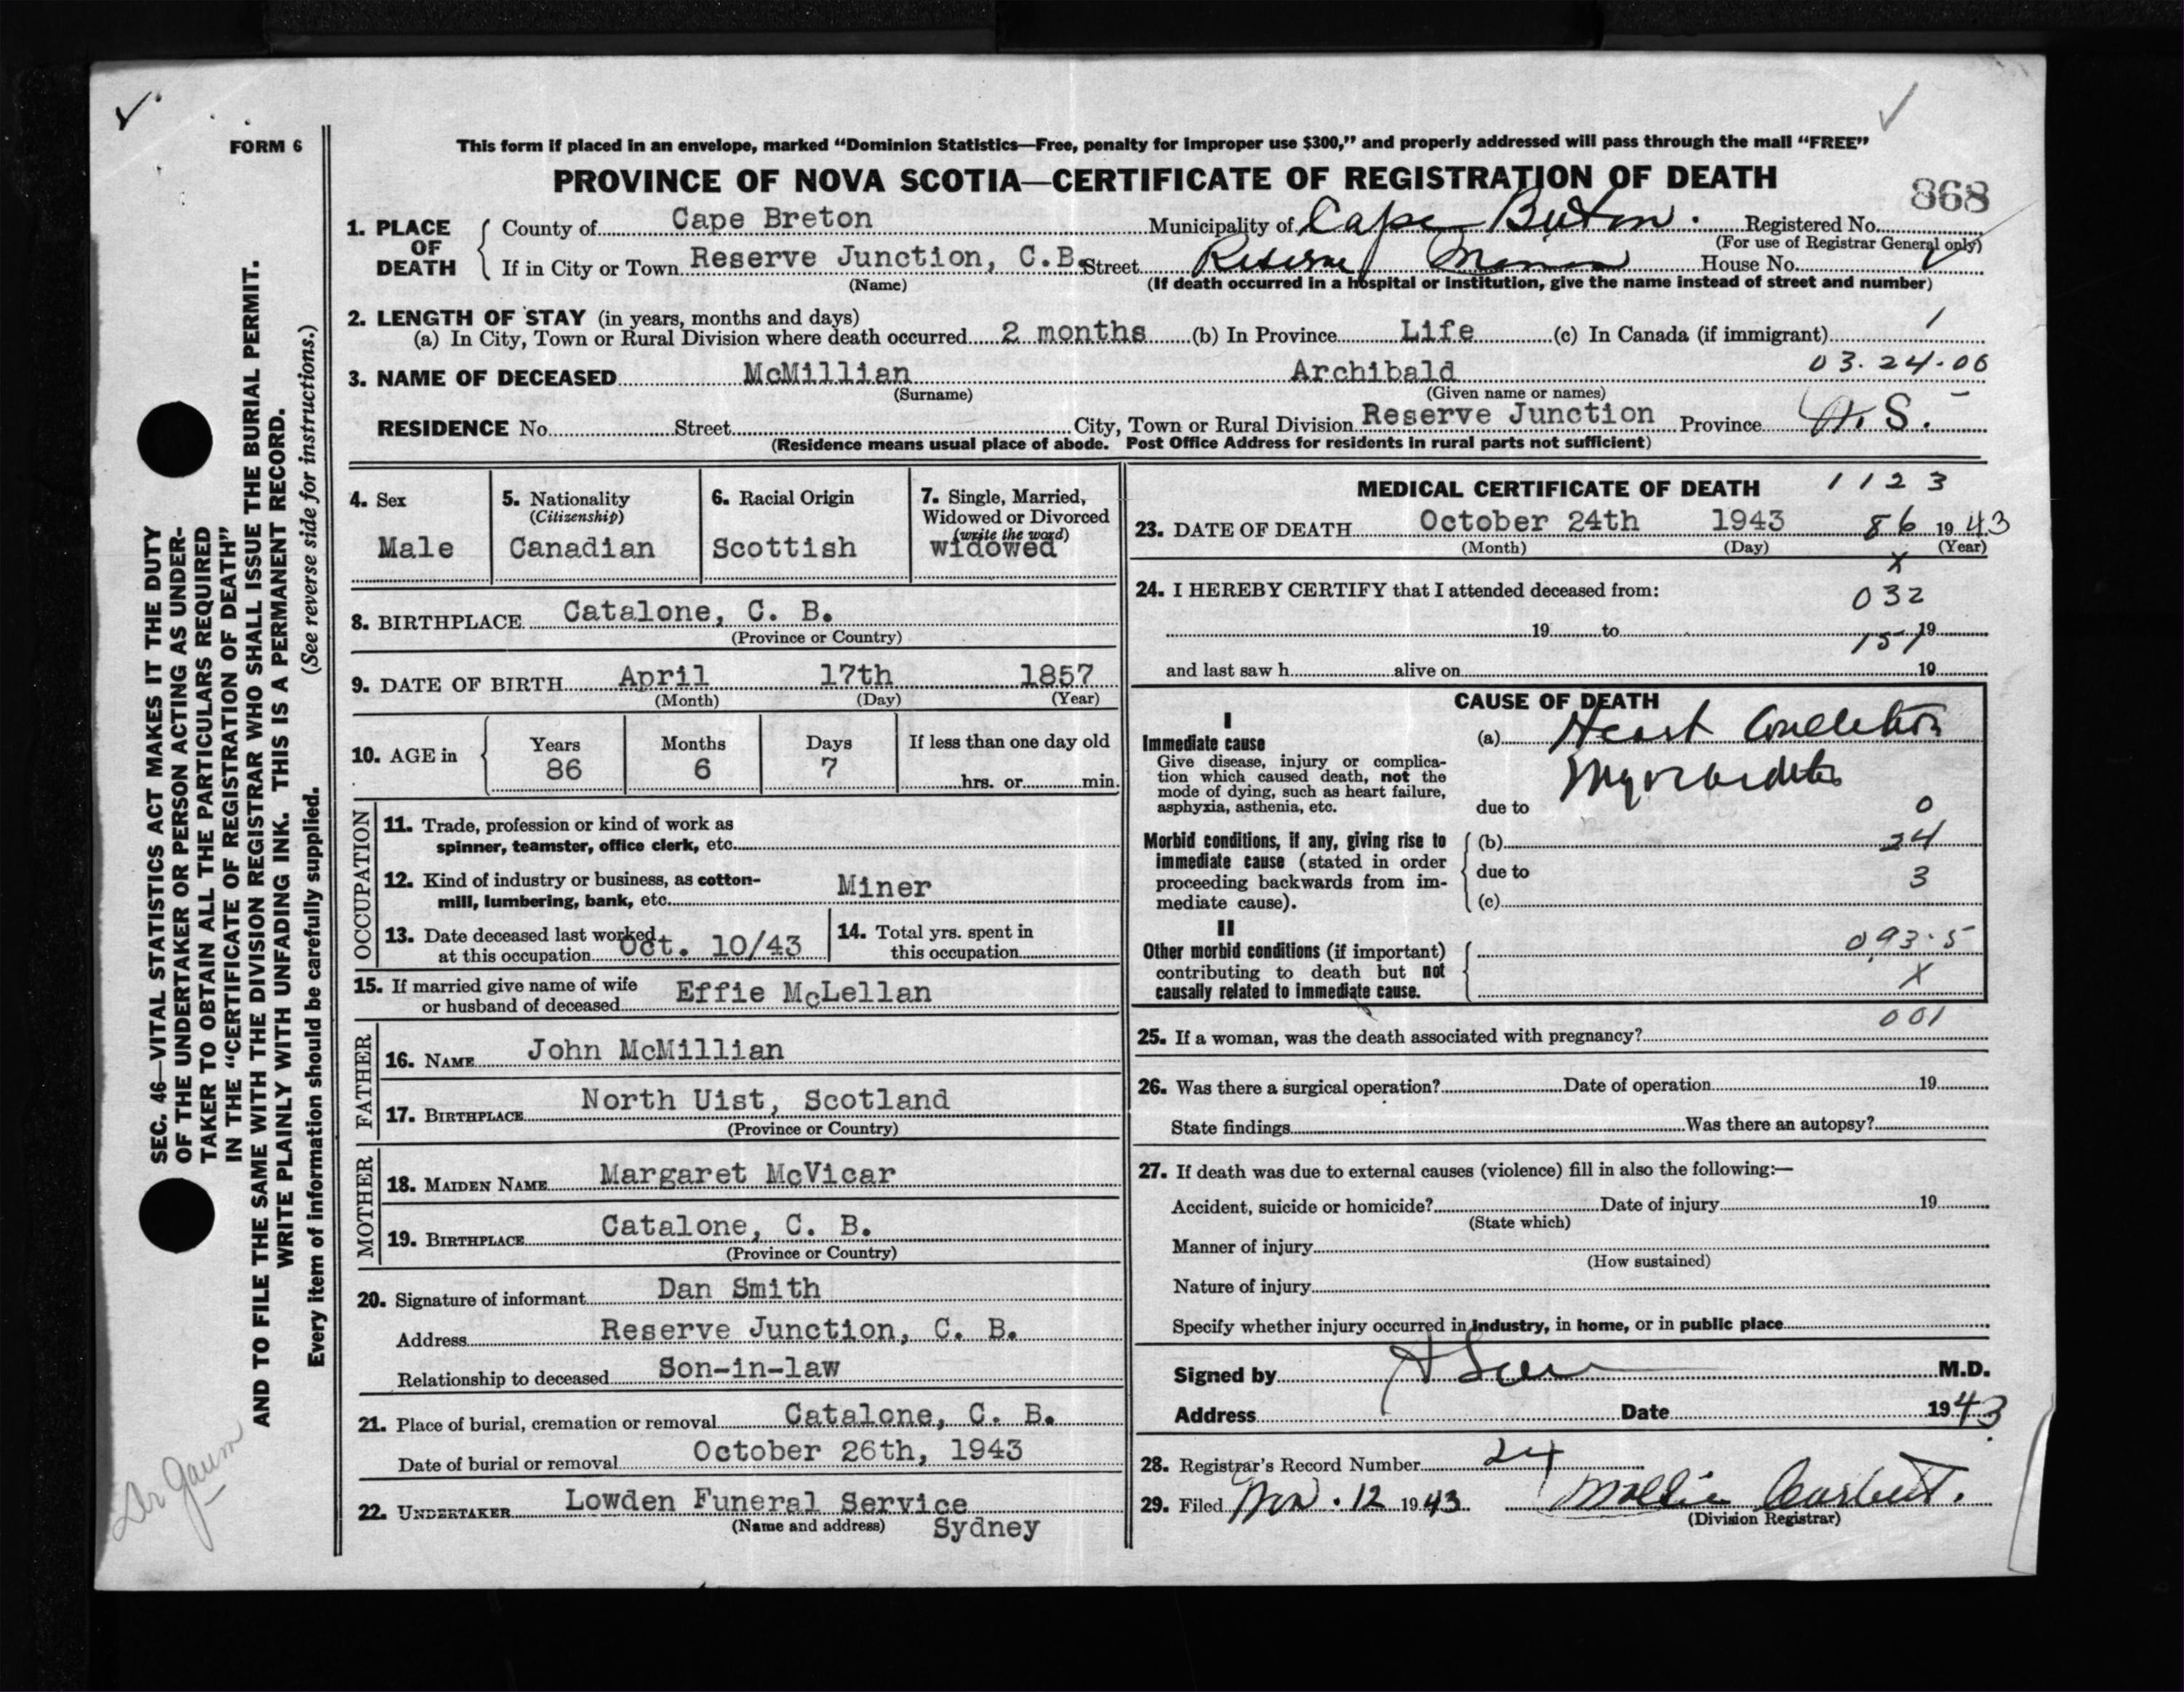 FORM 6
This form if placed in an envelope, marked “Dominion Statistics—Free, penalty for improper use $300,” and properly addressed will pass through the mail “FREE”
PROVINCE OF NOVA SCOTIA—CERTIFICATE OF REGISTRATION OF DEATH
868
1. PLACE OF DEATH County of Cape Breton Municipality of Cape Breton. Registered No.
(For use of Registrar General only)
If in City or Town Reserve Junction, C.B. Street Reserve Mines House No.
(Name) (If death occurred in a hospital or institution, give the name instead of street and number)
2. LENGTH OF STAY (in years, months and days)
(a) In City, Town or Rural Division where death occurred 2 months (b) In Province Life (c) In Canada (if immigrant) 1
03.24.06
3. NAME OF DECEASED McMillian Archibald
(Surname) (Given name or names)
RESIDENCE No. Street City, Town or Rural Division Reserve Junction Province N.S.
(Residence means usual place of abode. Post Office Address for residents in rural parts not sufficient)
4. Sex
Male
5. Nationality
(Citizenship)
Canadian
6. Racial Origin
Scottish
7. Single, Married,
Widowed or Divorced
(write the word)
widowed
8. BIRTHPLACE Catalone, C. B.
(Province or Country)
9. DATE OF BIRTH April 17th 1857
(Month) (Day) (Year)
10. AGE in Years Months Days If less than one day old
86 6 7 hrs. or min.
OCCUPATION
11. Trade, profession or kind of work as
spinner, teamster, office clerk, etc.
12. Kind of industry or business, as cotton-
mill, lumbering, bank, etc. Miner
13. Date deceased last worked
at this occupation Oct. 10/43
14. Total yrs. spent in
this occupation
15. If married give name of wife
or husband of deceased Effie McLellan
FATHER
16. NAME John McMillian
17. BIRTHPLACE North Uist, Scotland
(Province or Country)
MOTHER
18. MAIDEN NAME Margaret McVicar
19. BIRTHPLACE Catalone, C. B.
(Province or Country)
20. Signature of informant Dan Smith
Address Reserve Junction, C. B.
Relationship to deceased Son-in-law
21. Place of burial, cremation or removal Catalone, C. B.
Date of burial or removal October 26th, 1943
22. UNDERTAKER Lowden Funeral Service
(Name and address) Sydney
MEDICAL CERTIFICATE OF DEATH 1123
23. DATE OF DEATH October 24th 1943 86 1943
(Month) (Day) (Year)
X
24. I HEREBY CERTIFY that I attended deceased from:
032
19 to 19
151
and last saw h alive on 19
CAUSE OF DEATH
I
Immediate cause
Give disease, injury or complica-
tion which caused death, not the
mode of dying, such as heart failure,
asphyxia, asthenia, etc.
(a) Heart Condition
Myocarditis
due to 0
Morbid conditions, if any, giving rise to
immediate cause (stated in order
proceeding backwards from im-
mediate cause).
(b) 24
due to 3
(c)
II
Other morbid conditions (if important)
contributing to death but not
causally related to immediate cause.
093.5
X
001
25. If a woman, was the death associated with pregnancy?
26. Was there a surgical operation? Date of operation 19
State findings Was there an autopsy?
27. If death was due to external causes (violence) fill in also the following:—
Accident, suicide or homicide? Date of injury 19
(State which)
Manner of injury
(How sustained)
Nature of injury
Specify whether injury occurred in industry, in home, or in public place
Signed by M.D.
Address Date 1943
28. Registrar's Record Number 24
29. Filed Nov. 12 1943 Mollie
(Division Registrar)
SEC. 46—VITAL STATISTICS ACT MAKES IT THE DUTY
OF THE UNDERTAKER OR PERSON ACTING AS UNDER-
TAKER TO OBTAIN ALL THE PARTICULARS REQUIRED
IN THE “CERTIFICATE OF REGISTRATION OF DEATH”
AND TO FILE THE SAME WITH THE DIVISION REGISTRAR WHO SHALL ISSUE THE BURIAL PERMIT.
WRITE PLAINLY WITH UNFADING INK. THIS IS A PERMANENT RECORD.
Every item of information should be carefully supplied. (See reverse side for instructions.)
Dr Gaum